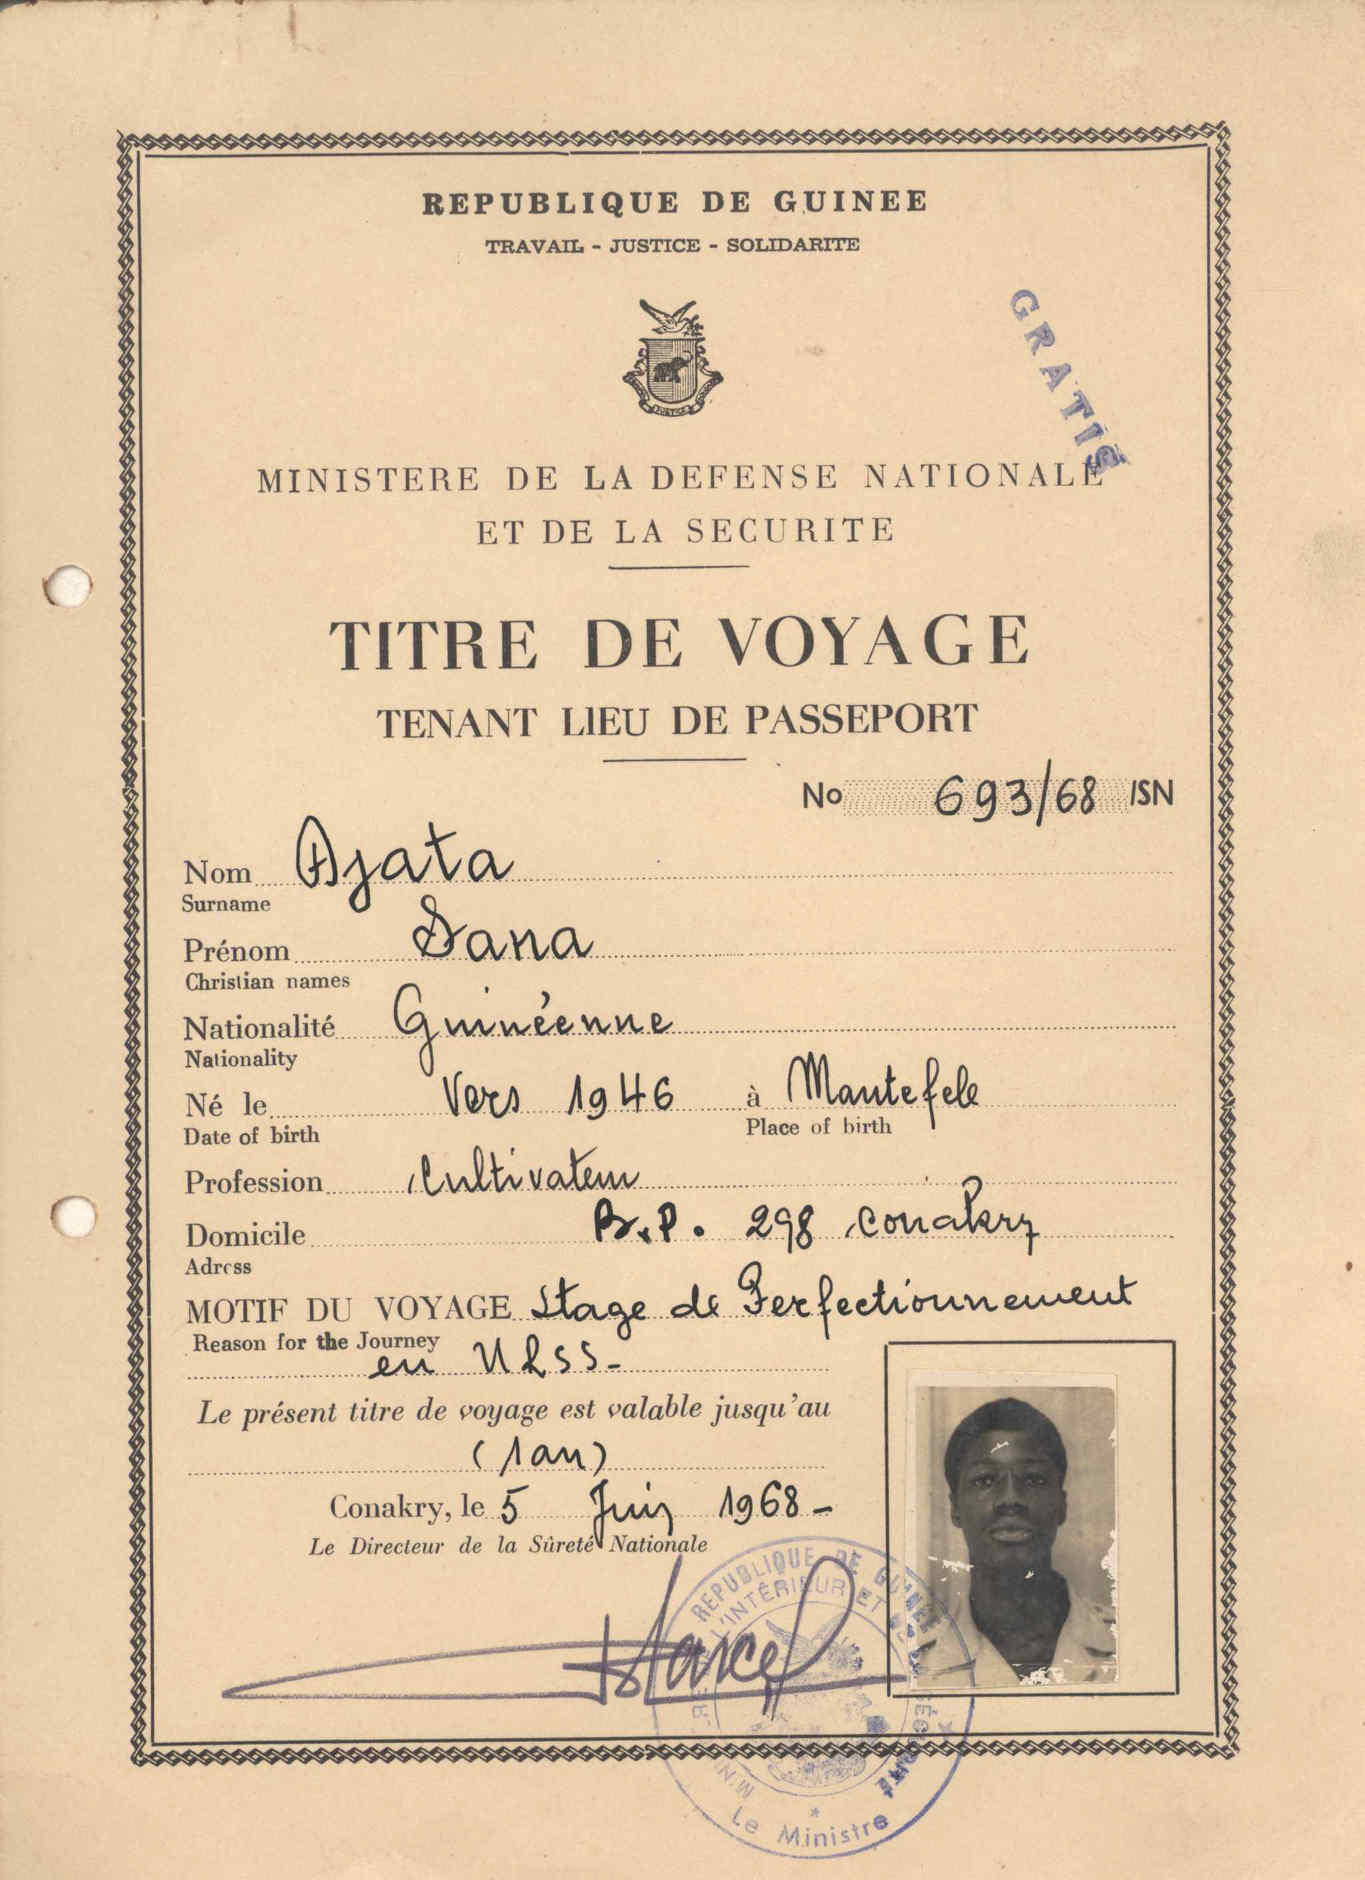 REPUBLIQUE DE GUINEE
TRAVAIL - JUSTICE - SOLIDARITE
GRATIS
MINISTERE DE LA DEFENSE NATIONALE
ET DE LA SECURITE
TITRE DE VOYAGE
TENANT LIEU DE PASSEPORT
No 693/68 /SN
Nom
Surname
Prénom Sana
Christian names
Nationalité Guinéenne
Nationality
Né le Vers 1946 à Mantefele
Date of birth Place of birth
Profession Cultivateur
Domicile B.P. 298 Conakry
Adress
MOTIF DU VOYAGE Stage de Perfectionnement
Reason for the Journey
en URSS-
Le présent titre de voyage est valable jusqu'au
(1 an)
Conakry, le 5 Juin 1968-
Le Directeur de la Sûreté Nationale
REPUBLIQUE DE GUINEE
L'INTÉRIEUR ET
SÉCURITÉ
Le Ministre